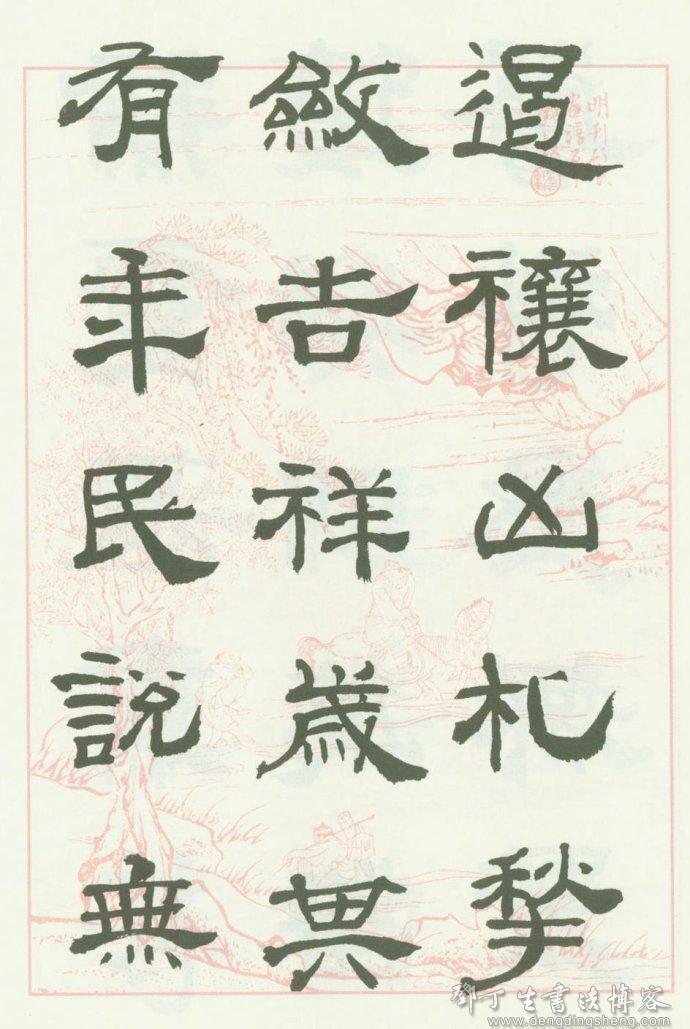 遏禳凶札揫
斂吉祥歲其
有年民說無
鄧丁生書法博客
www.dengdingsheng.com